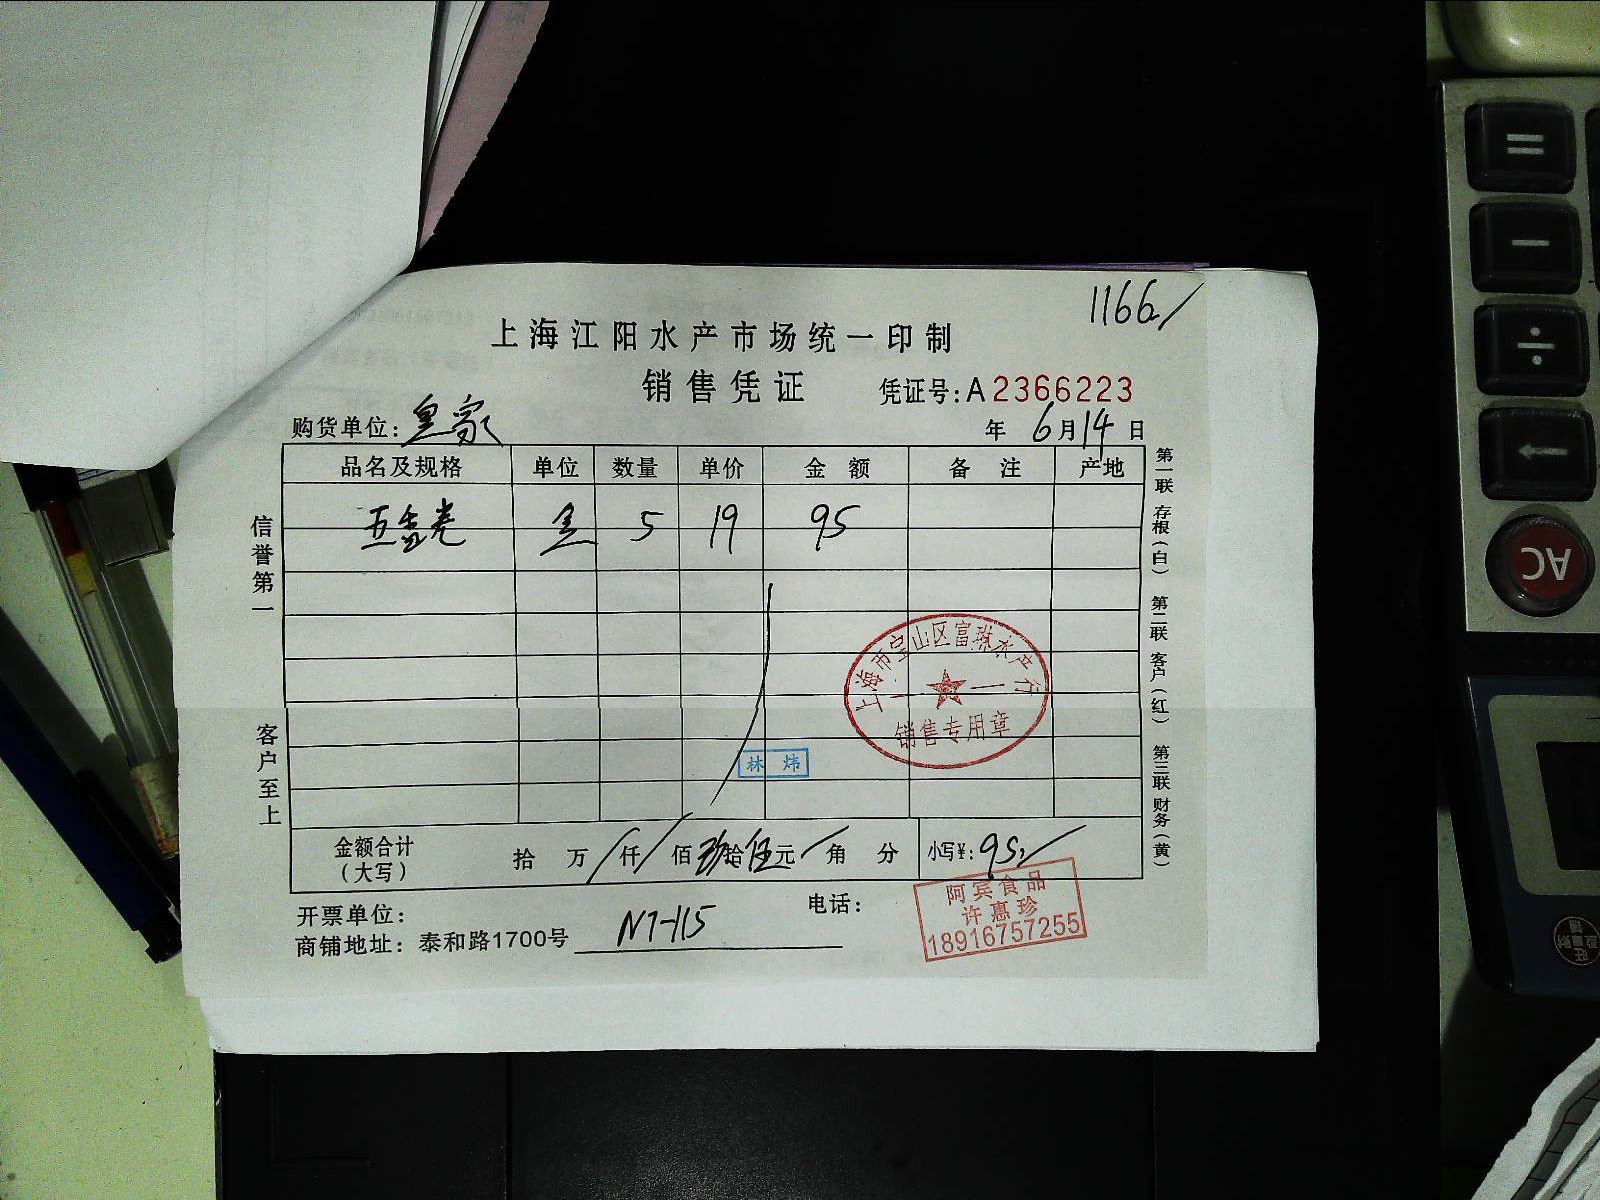 1166/
上海江阳水产市场统一印制
销售凭证 凭证号:A2366223
购货单位:皇家 年 6月14日
品名及规格 单位 数量 单价 金额 备注 产地
5 19 95
上海市宝山区富琳水产行
销售专用章
林炜
金额合计(大写) 拾 万 仟 佰 玖拾伍元 角 分 小写¥:95
开票单位: 电话:
商铺地址:泰和路1700号 N7-115
阿宾食品
许惠珍
18916757255
信誉第一
客户至上
第一联 存根(白) 第二联 客户(红) 第三联 财务(黄)
=
−
÷
←
AC